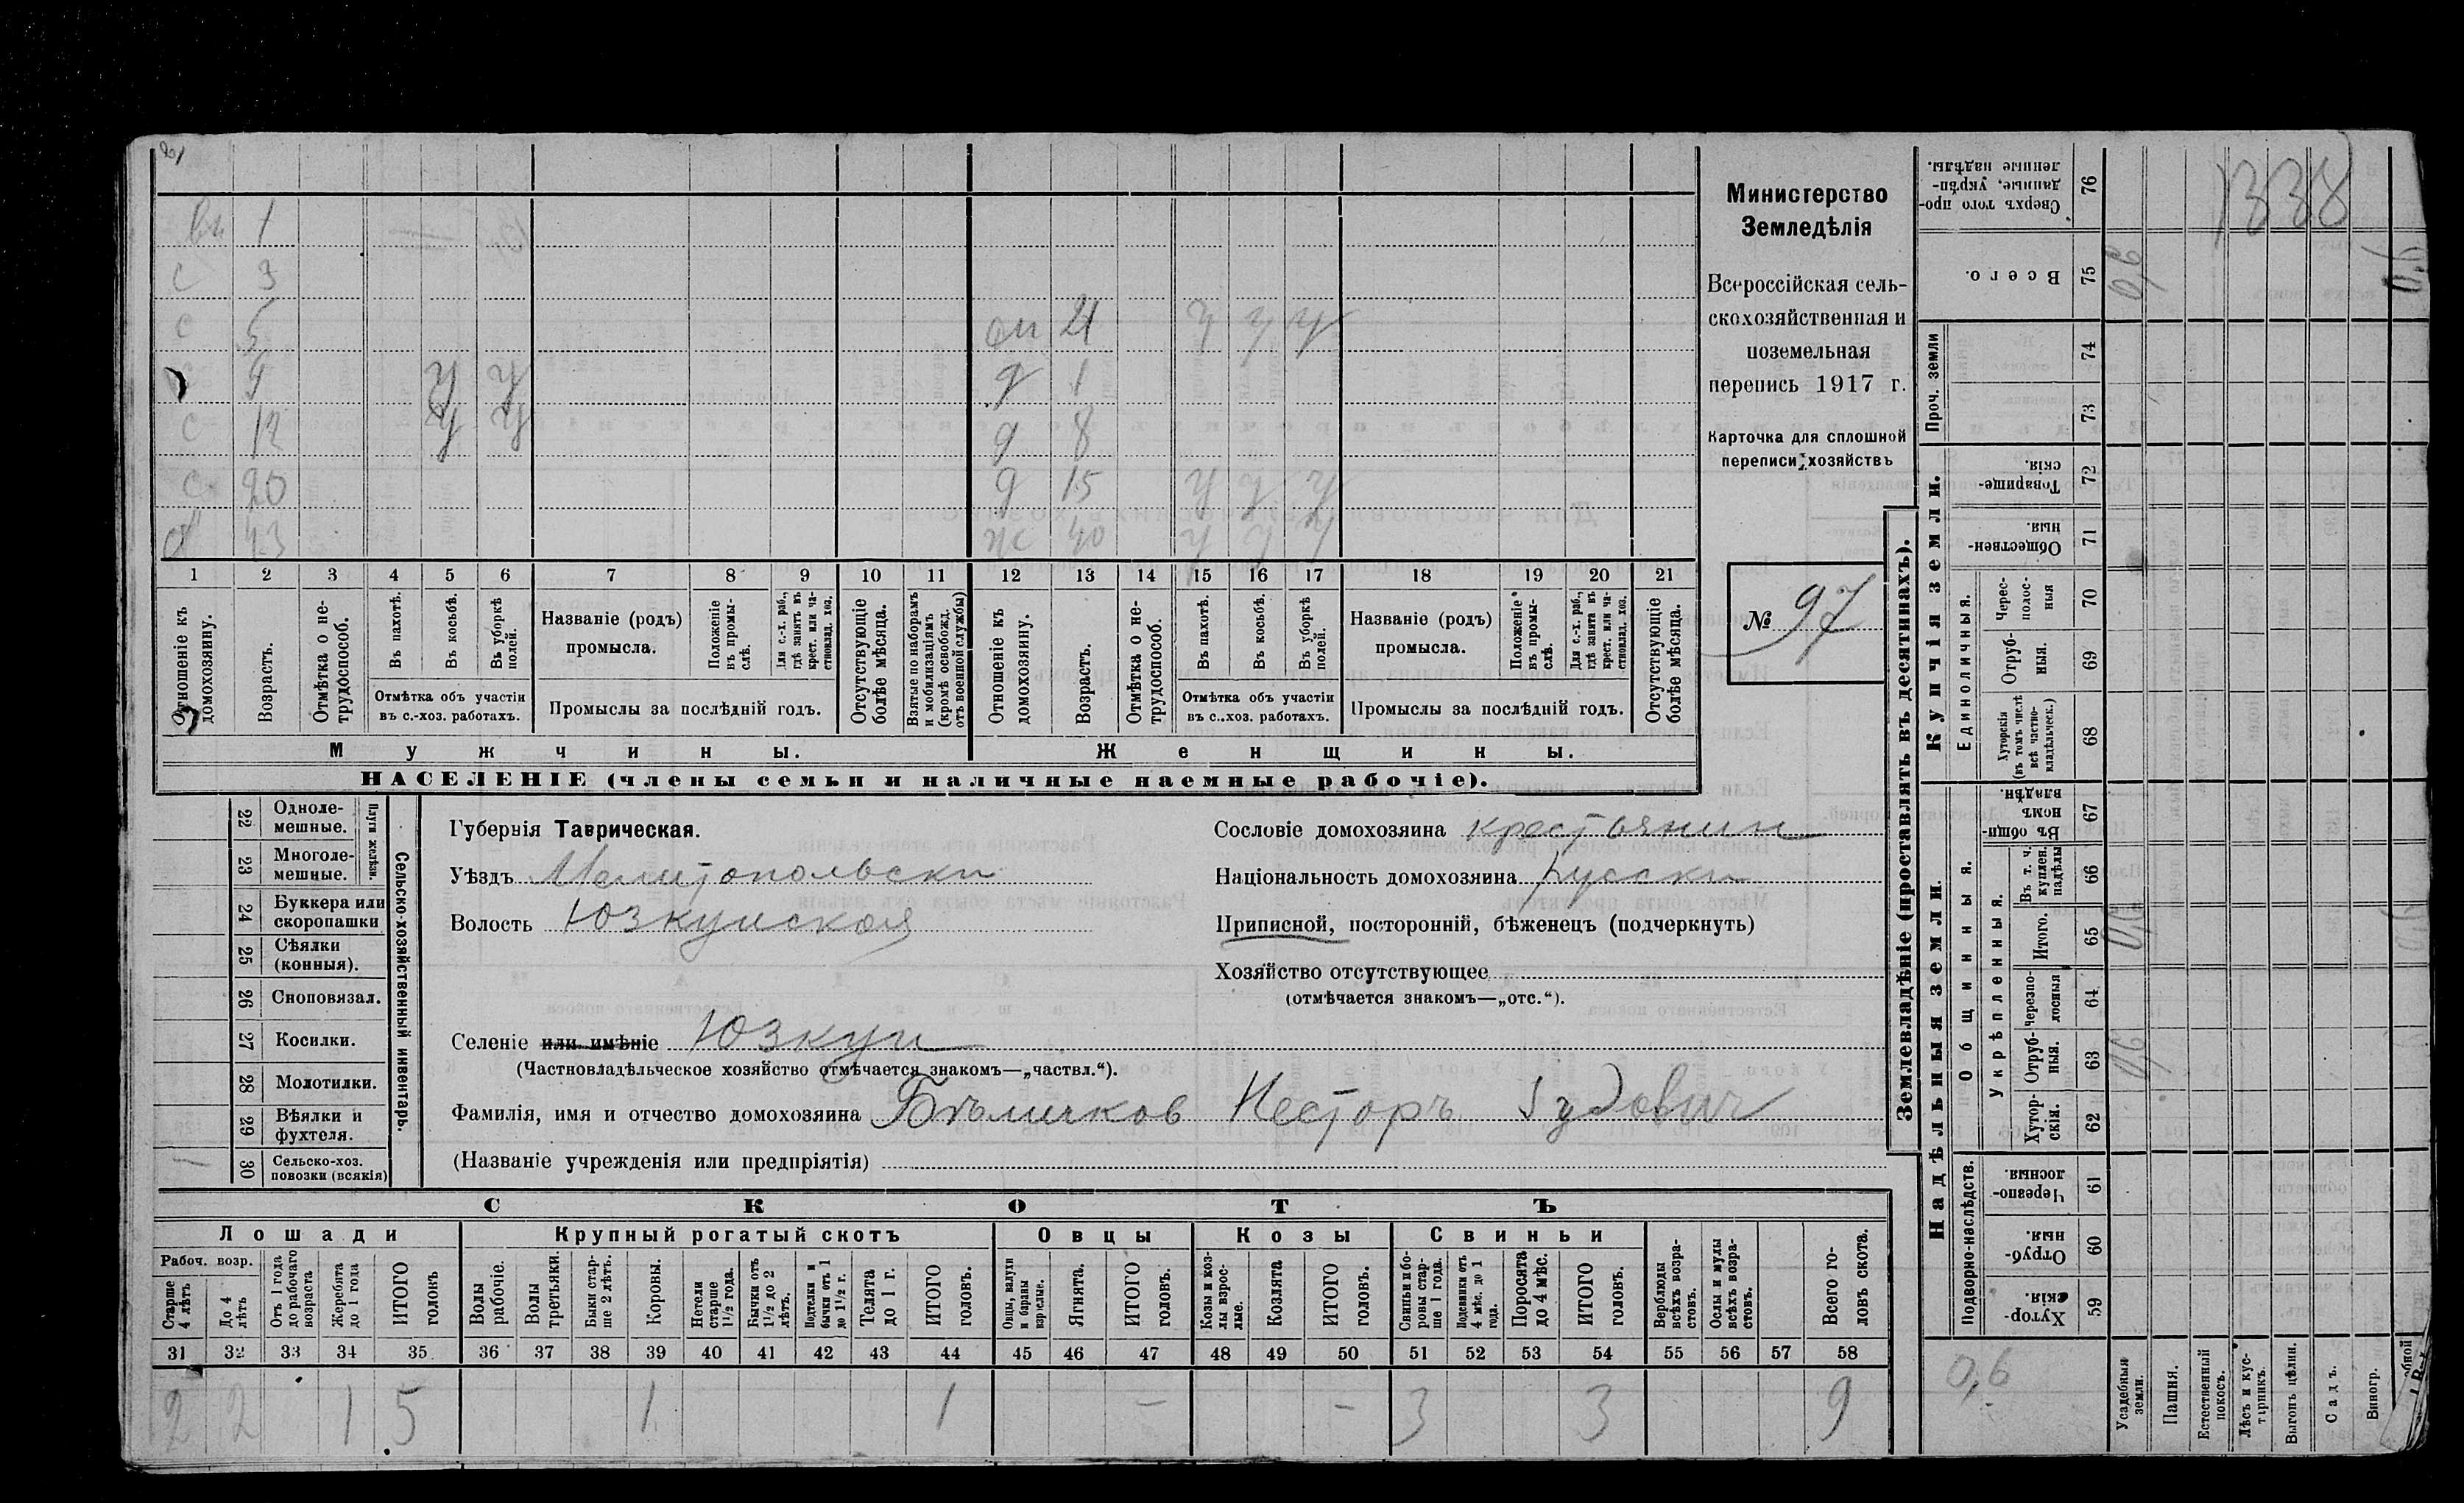 21
вн 1
с 3
с 5 сн 21 у у у
с 9 у у д 1
с 12 у у д 8
с 20 д 15 у у у
х 43 ж 40 у у у
1 2 3 4 5 6 7 8 9 10 11 12 13 14 15 16 17 18 19 20 21
Отношеніе къ домохозяину.
Возрастъ.
Отмѣтка о не-трудоспособ.
Въ пахотѣ.
Въ косьбѣ.
Въ уборкѣ полей.
Отмѣтка объ участіи
въ с.-хоз. работахъ.
Названіе (родъ)
промысла.
Положеніе въ промы-слѣ.
Для с.-х. раб., гдѣ занятъ въ крест. или ча-стновлад. хоз.
Промыслы за послѣдній годъ.
Отсутствующіе болѣе мѣсяца.
Взятые по наборамъ и мобилизаціямъ (кромѣ освобожд. отъ военной службы)
Отношеніе къ домохозяину.
Возрастъ.
Отмѣтка о не-трудоспособ.
Въ пахотѣ.
Въ косьбѣ.
Въ уборкѣ полей.
Отмѣтка объ участіи
въ с.-хоз. работахъ.
Названіе (родъ)
промысла.
Положеніе въ промы-слѣ.
Для с.-х. раб., гдѣ занята въ крест. или ча-стновлад. хоз.
Промыслы за послѣдній годъ.
Отсутствующіе болѣе мѣсяца.
Мужчины. Женщины.
НАСЕЛЕНІЕ (члены семьи и наличные наемные рабочіе).
Министерство
Земледѣлія
Всероссійская сель-
скохозяйственная и
поземельная
перепись 1917 г.
Карточка для сплошной
переписи хозяйствъ
№ 97
22 Одноле-мешные.
23 Многоле-мешные.
Плуги желѣзн.
24 Буккера или скоропашки
25 Сѣялки (конныя).
26 Сноповязал.
27 Косилки.
28 Молотилки.
29 Вѣялки и фухтеля.
1 30 Сельско-хоз. повозки (всякія)
Сельско-хозяйственный инвентарь.
Губернія Таврическая.
Уѣздъ Мелитопольски
Волость Юзкуиская
Сословіе домохозяина крестьянин
Національность домохозяина русски
Приписной, посторонній, бѣженецъ (подчеркнуть)
Хозяйство отсутствующее
(отмѣчается знакомъ—„отс.“).
Селеніе или имѣніе Юзкуи
(Частновладѣльческое хозяйство отмѣчается знакомъ—„частвл.“).
Фамилія, имя и отчество домохозяина Бѣличков Несторъ Іудович
(Названіе учрежденія или предпріятія)
СКОТЪ
Лошади Крупный рогатый скотъ Овцы Козы Свиньи
Рабоч. возр.
Старше 4 лѣтъ
До 4 лѣтъ
Отъ 1 года до рабочаго возраста
Жеребята до 1 года
ИТОГО головъ
Волы рабочіе.
Волы третьяки.
Быки стар-ше 2 лѣтъ.
Коровы.
Нетели старше 1½ года.
Бычки отъ 1½ до 2 лѣтъ.
Подтелки и бычки отъ 1 до 1½ г.
Телята до 1 г.
ИТОГО головъ.
Овцы, валухи и бараны взрослые.
Ягнята.
ИТОГО головъ.
Козы и коз-лы взрос-лые.
Козлята
ИТОГО головъ.
Свиньи и бо-ровы стар-ше 1 года.
Подсвинки отъ 4 мѣс. до 1 года.
Поросята до 4 мѣс.
ИТОГО головъ.
Верблюды всѣхъ возра-стовъ.
Ослы и мулы всѣхъ возра-стовъ.
Всего го-ловъ скота.
31 32 33 34 35 36 37 38 39 40 41 42 43 44 45 46 47 48 49 50 51 52 53 54 55 56 57 58
2 2 1 5 1 1 — — 3 3 9
Землевладѣніе (проставлять въ десятинахъ).
Надѣльныя земли. Купчія земли.
Подворно-наслѣдств.
Общинныя.
Укрѣпленныя.
Единоличныя.
Проч. земли
Хутор-скія. 59
Отруб-ныя. 60
Черезпо-лосныя 61
Хутор-скія. 62
Отруб-ныя. 63
Черезпо-лосныя 64
Итого. 65
Въ т. ч. куплен. надѣлы 66
Въ общи-номъ владѣн. 67
Хуторскія (въ томъ числѣ всѣ частно-владѣльческ.) 68
Отруб-ныя. 69
Черес-полос-ныя 70
Обществен-ныя 71
Товарище-скія. 72
73
74
Всего. 75
Сверхъ того про-данные, укрѣп-ленные надѣлы. 76
0,6
Усадебныя земли. 0,6 0,6 0,6
Пашня.
Естественный покосъ.
Лѣсъ и кус-тарникъ.
Выгонъ цѣлин.
Садъ.
Виногр.
1338
0,6